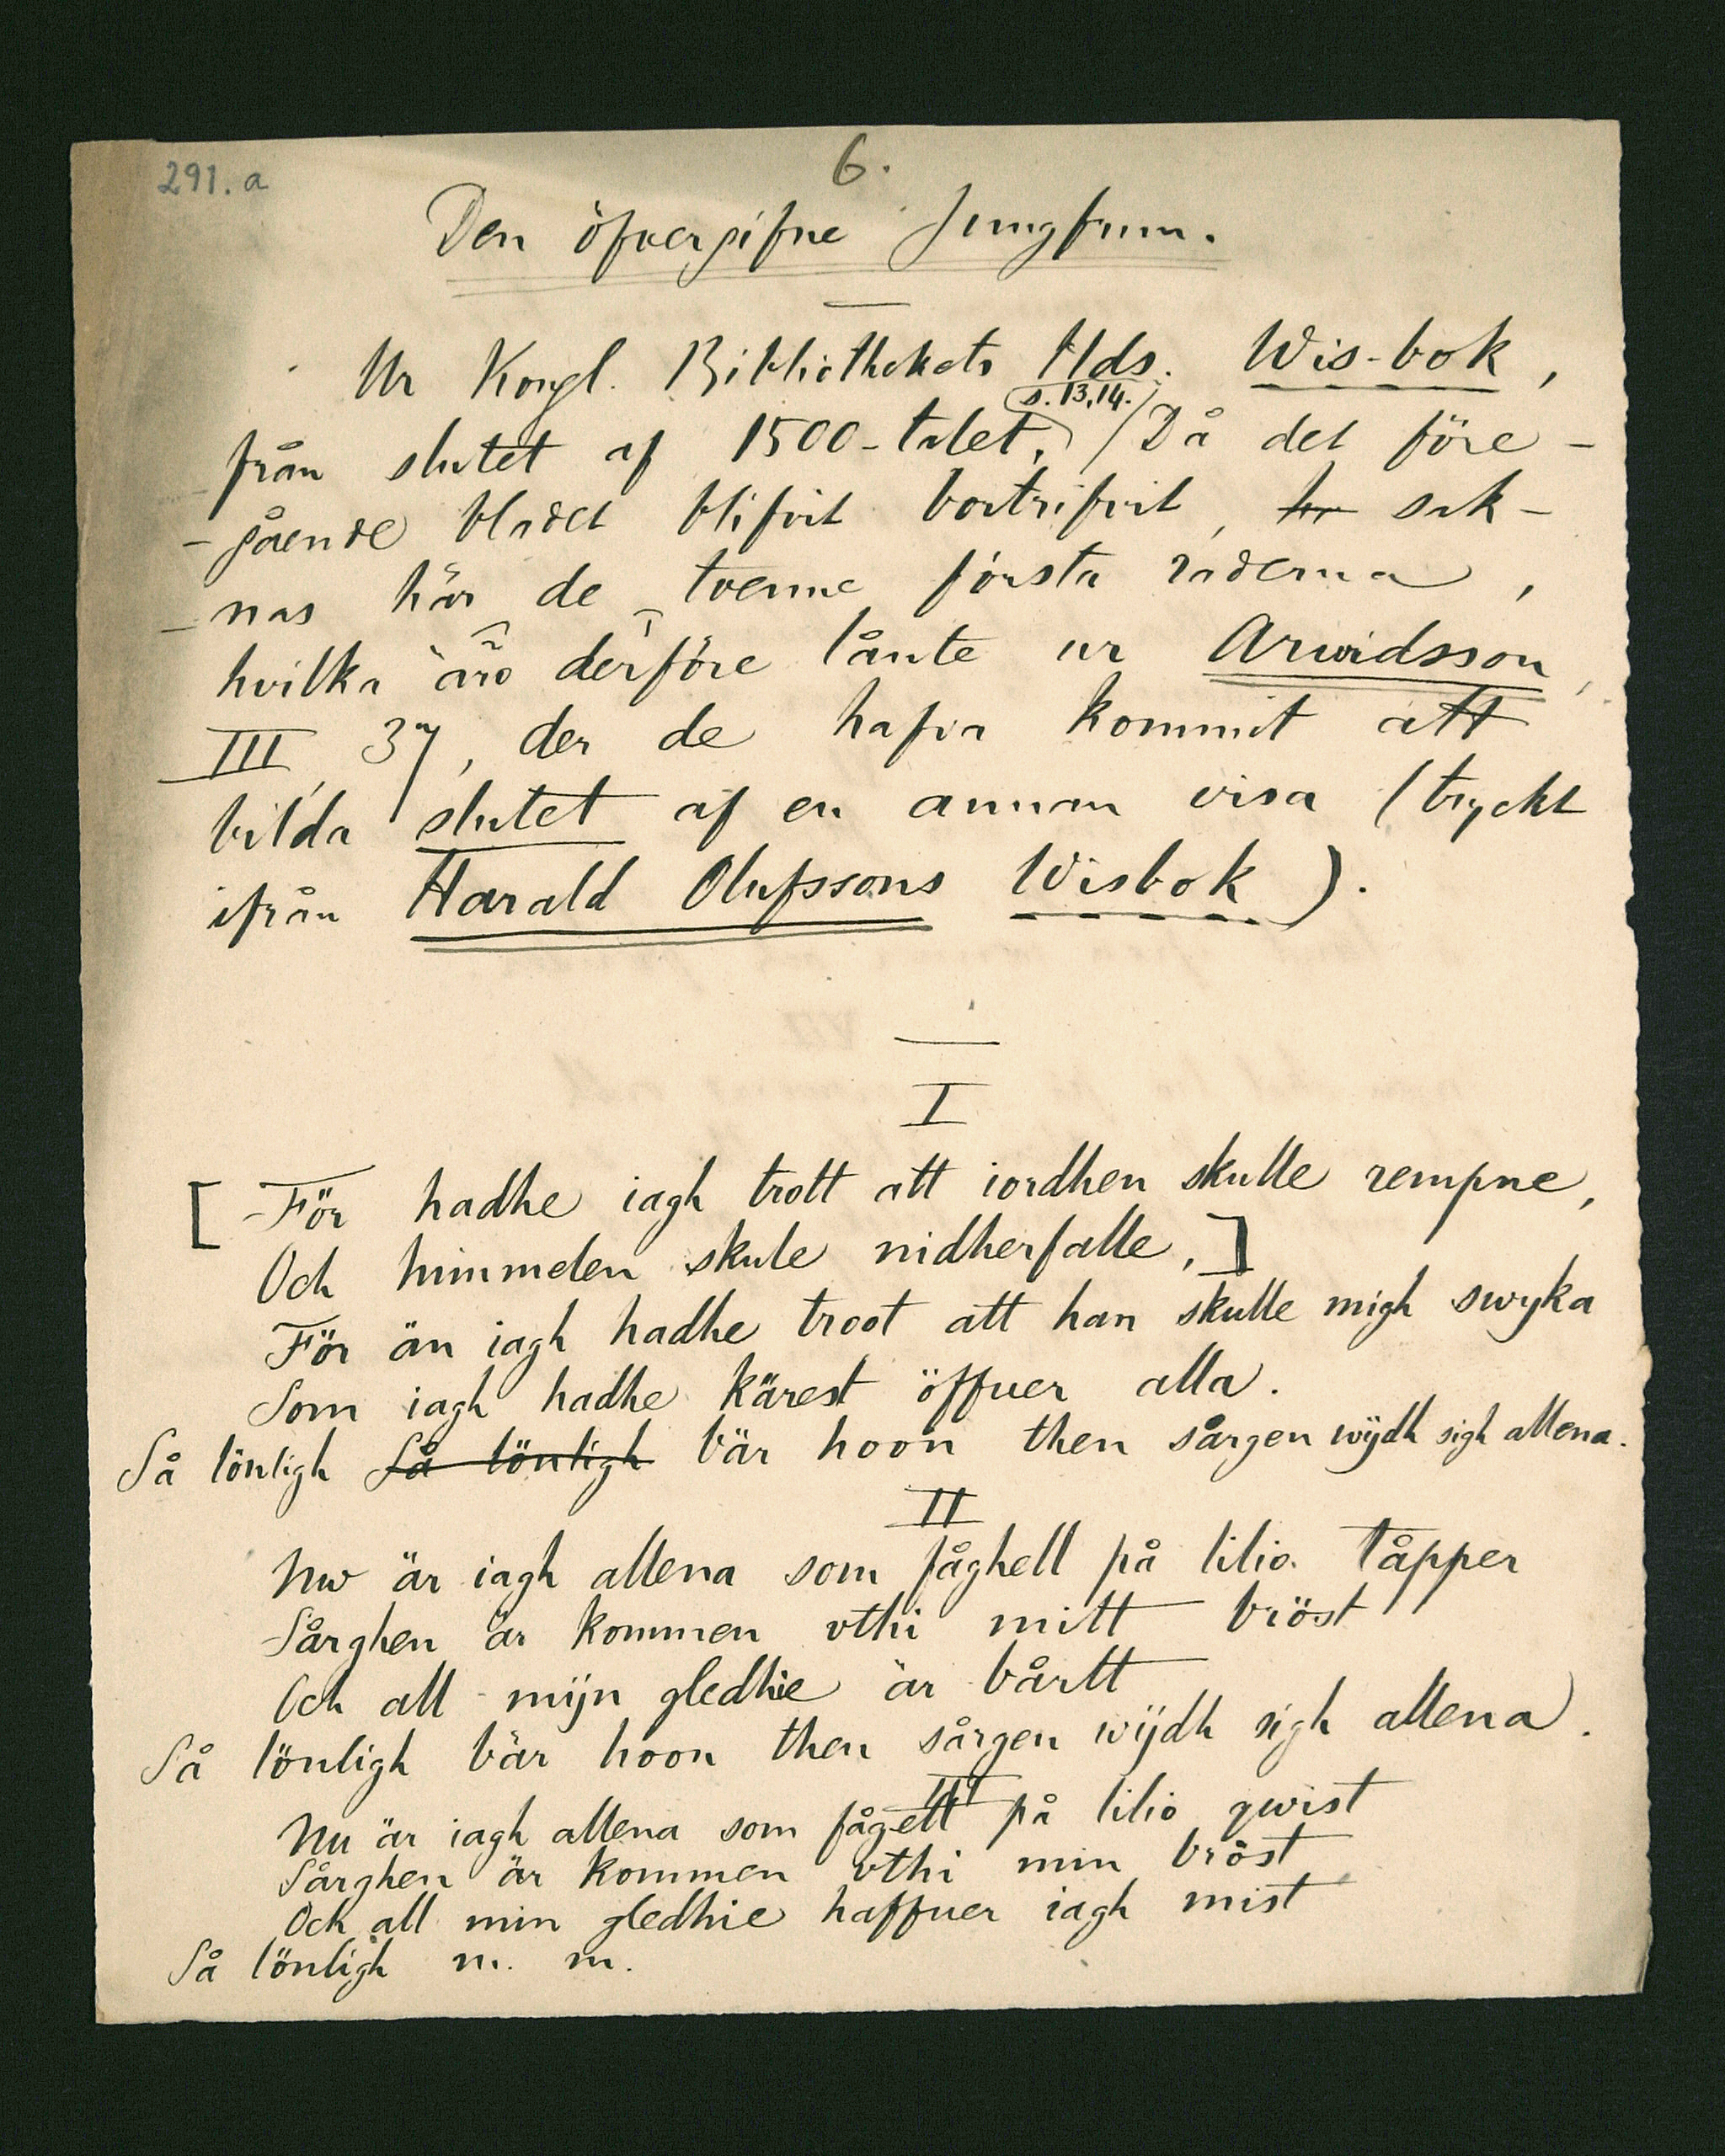 291.a
6.
Den öfvergifne Jungfrun.
Ur Kongl. Bibliothekets Hds. Wis-bok,
s. 13, 14.
från slutet af 1500-talet. Då det före-
-gående bladet blifvit bortrifvit, här sak-
-nas här de tvenne första raderna,
hvilka äro derföre lånte ur Arwidsson,
III, 37, der de hafva kommit att
bilda slutet af en annan visa (tryckt
ifrån Harald Olufssons Wisbok).
I
[För hadhe iagh trott att iordhen skulle rempne,
Och himmelen skule nidherfalle,]
För än iagh hadhe troot att han skulle migh swyka
Som iagh hadhe kärest öffuer alla.
Så lönligh Så lönligh bär hoon then sårgen wijdh sigh allena.
II
Nw är iagh allena som fåghell på lilio tåpper
Sårghen är kommen vthi mitt bröst
Och all mijn gledhie är bårtt
Så lönligh bär hoon then sårgen wijdh sigh allena.
III
Nu är iagh allena som fågell på lilio qwist
Sårghen är kommen vthi min bröst
Och all min gledhie haffuer iagh mist
Så lönligh m. m.